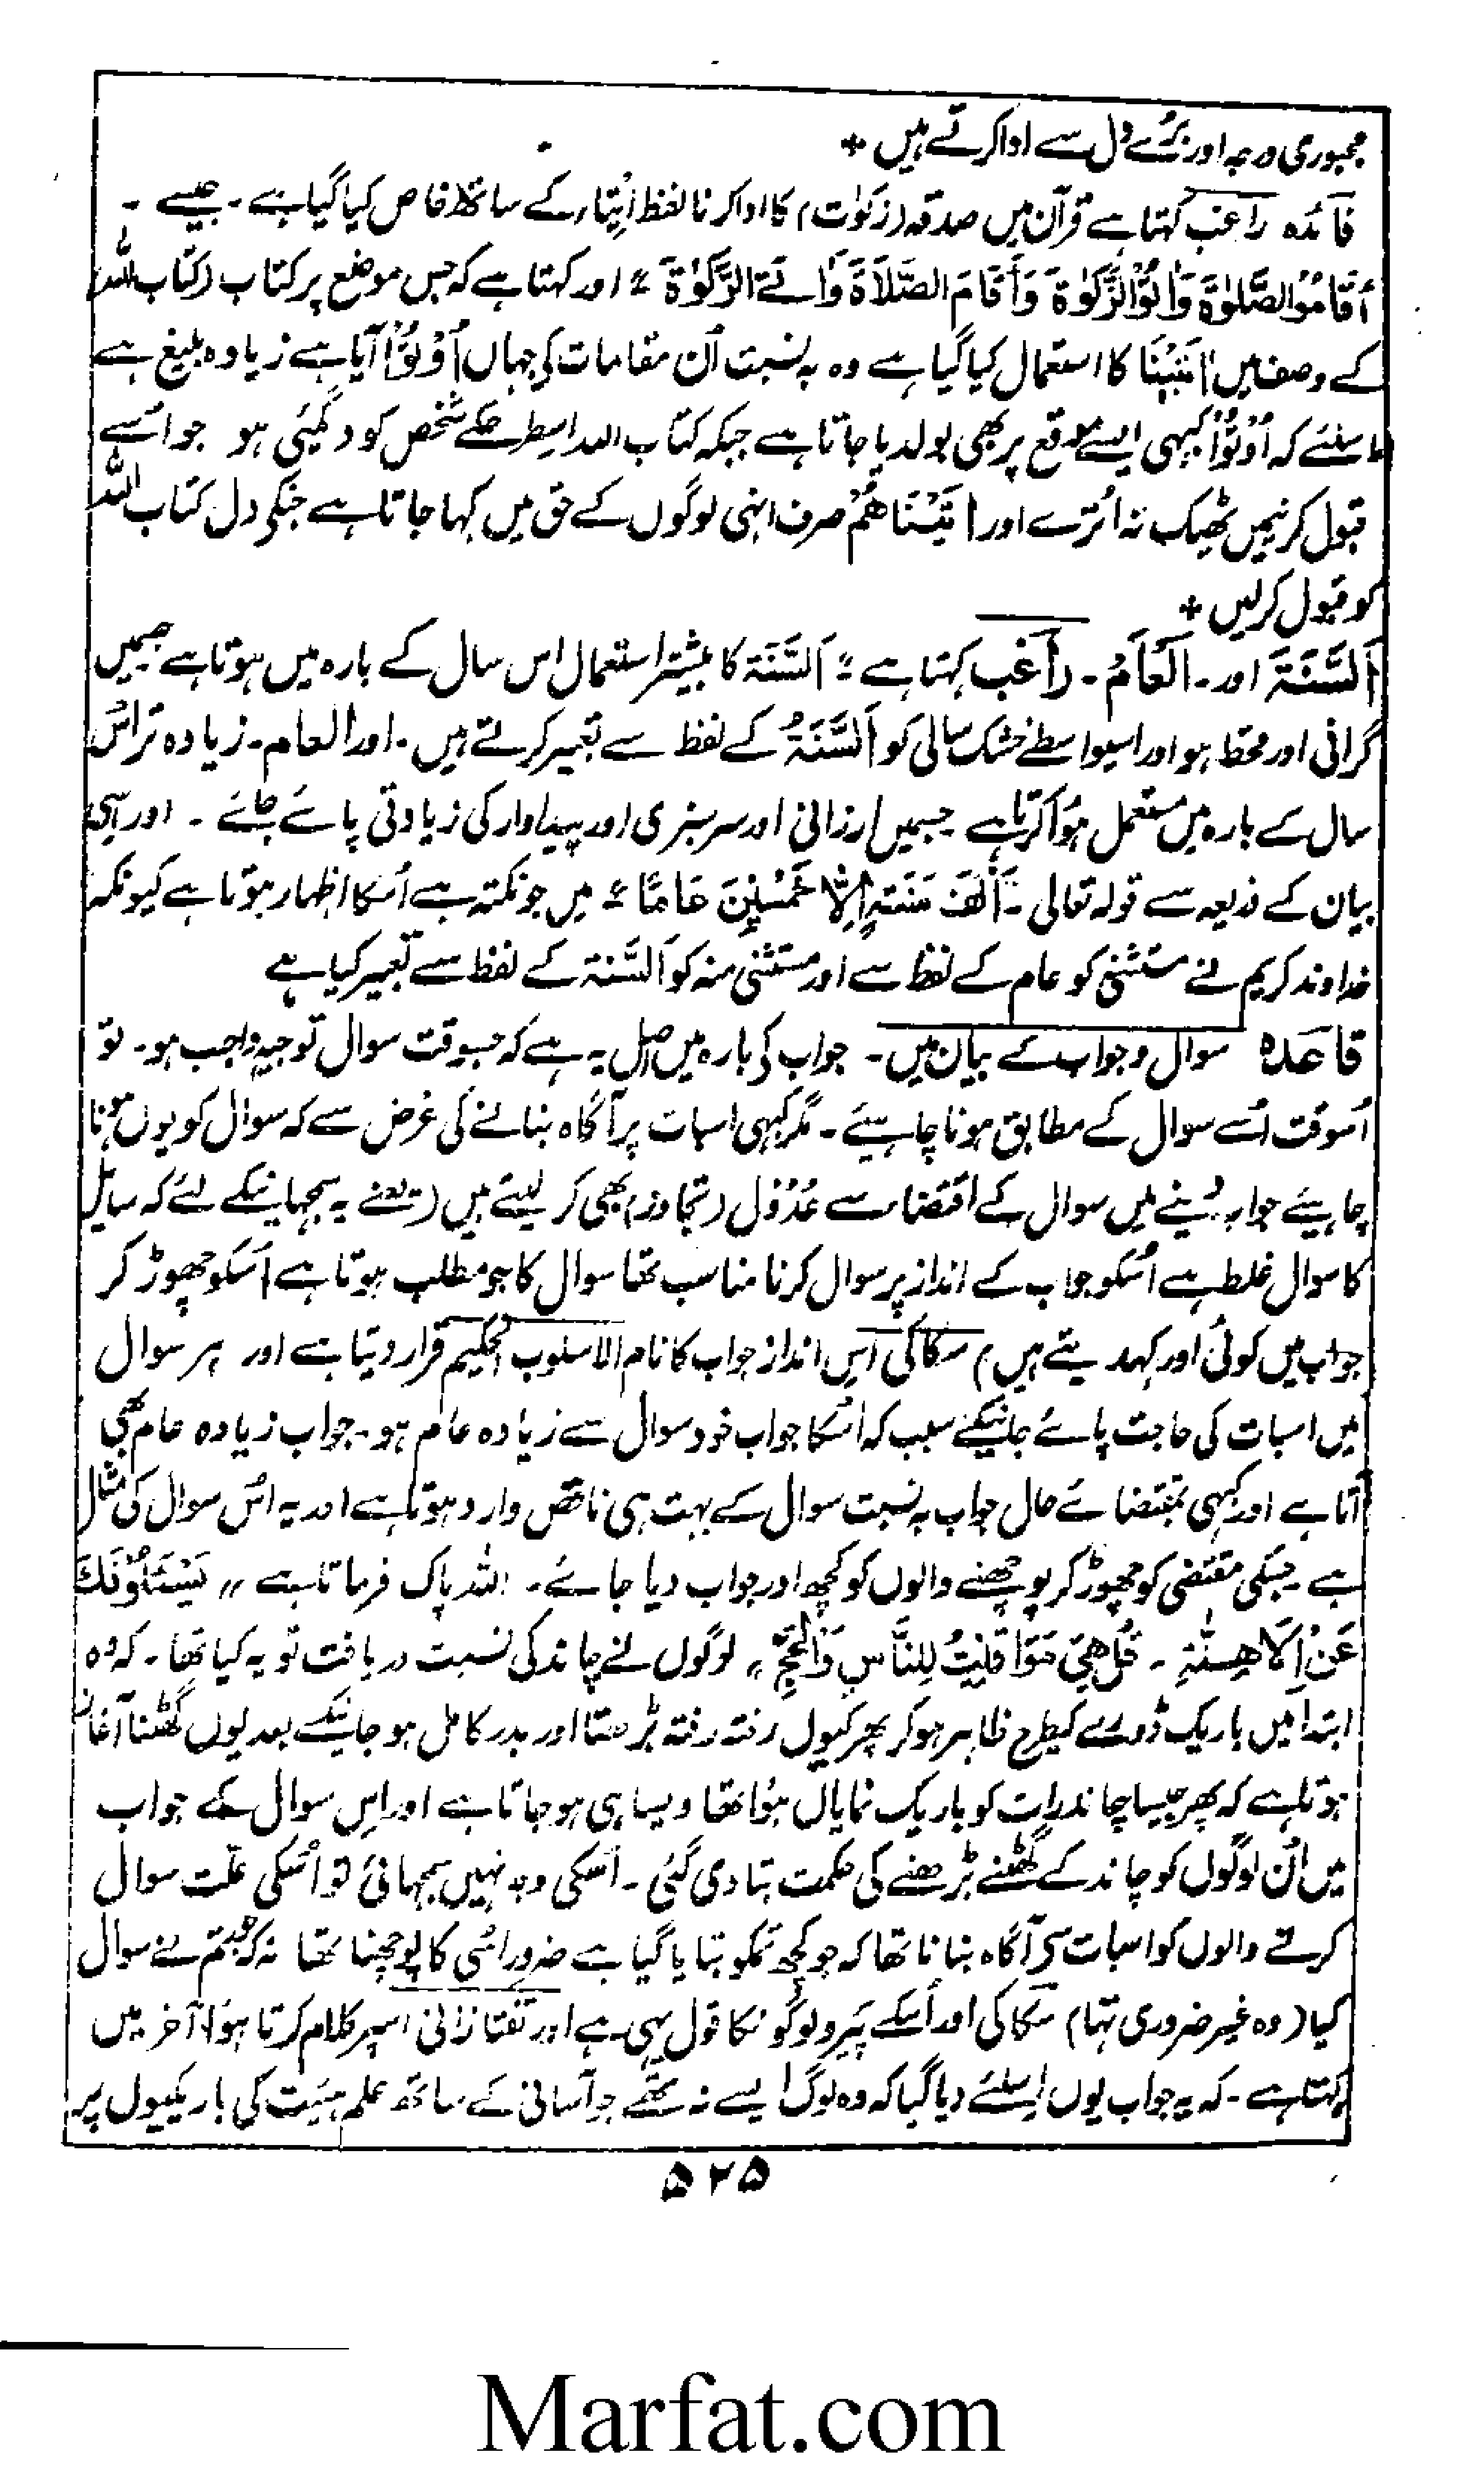 مجبوری درجہ اور بُرے دل سے ادا کرتے ہیں +
فائدہ راغب کہتا ہے قرآن میں صدقہ (زکوٰت) کا ادا کرنا لفظ اِیْتَاء کے ساتھ خاص کیا گیا ہے ۔ جیسے ۔
أَقَامُوا الصَّلٰوةَ وَاٰتَوُا الزَّكٰوةَ وَأَقَامَ الصَّلَاةَ وَاٰتَے الزَّكٰوةَ ؛ اور کہتا ہے کہ جس موضع پر کتاب (کتاب اللہ)
کے وصف میں اٰتَیْنَا کا استعمال کیا گیا ہے وہ بہ نسبت اُن مقامات کی جہاں اُوْتُوْا آیا ہے زیادہ بلیغ ہے
اسلئے کہ اُوْتُوْا کبہی ایسے موقع پر بھی بولدیا جاتا ہے جبکہ کتاب اللہ اسطرحکے شخص کو دیگئی ہو جو اُسے
قبول کرنیمیں ٹھیک نہ اُترے اور اٰتَیْنَاهُمْ صرف انہی لوگوں کے حق میں کہا جاتا ہے جنکی دل کتاب اللہ
کو قبول کرلیں +
اَلسَّنَةَ اور ۔ اَلْعَامُ ۔ راغب کہتا ہے ؛ اَلسَّنَة کا بیشتر استعمال اس سال کے بارہ میں ہوتا ہے جسمیں
گرانی اور قحط ہو اور اسیواسطے خشک سالی کو اَلسَّنَةُ کے لفظ سے تعبیر کرتے ہیں ۔ اور العام ۔ زیادہ تر اُس
سال کے بارہ میں مستعمل ہؤا کرتا ہے جسمیں ارزانی اور سرسبزی اور پیداوار کی زیادتی پائے جائے ۔ اور اسی
بیان کے ذریعہ سے قولہ تعالی ۔ أَلْفَ سَنَةٍ اِلَّا خَمْسِیْنَ عَامًا ؛ میں جو نکتہ ہے اُسکا اظہار ہوتا ہے کیونکہ
خداوند کریم نے مستثنیٰ کو عام کے لفظ سے اور مستثنیٰ منہ کو اَلسَّنة کے لفظ سے تعبیر کیا ہے
قاعدہ سوال و جواب کے بیان میں ۔ جواب کی بارہ میں اصل یہ ہے کہ جسوقت سوال توجیہ واجب ہو ۔ تو
اُسوقت اُسے سوال کے مطابق ہونا چاہیئے ۔ مگر کبہی اسبات پر آگاہ بنانے کی غرض سے کہ سوال کو یوں ہونا
چاہیئے جواب دینے میں سوال کے اقتضا سے عُدُوْل (تجاوز) بھی کر لیتے ہیں (یعنے یہ سمجہانیکے لئے کہ سایل
کا سوال غلط ہے اُسکو جواب کے انداز پر سوال کرنا مناسب تھا سوال کا جو مطلب ہوتا ہے اُسکو چھوڑ کر
جواب میں کوئی اور کہدیتے ہیں) سکاکی اُس انداز جواب کا نام الاسلوب الحکیم قرار دیتا ہے اور ہر سوال
میں اسبات کی حاجت پائے جانیکے سبب کہ اُسکا جواب خود سوال سے زیادہ عام ہو ۔ جواب زیادہ عام بھی
آتا ہے اور کبہی بمقتضائے حال جواب بہ نسبت سوال کے بہت ہی ناقص وارد ہوتا ہے اور یہ اُس سوال کی مثال
ہے جسکی مقتضی کو چھوڑ کر پوچھنے والوں کو کچھ اور جواب دیا جائے ۔ اللہ پاک فرماتا ہے " یَسْئَلُوْنَكَ
عَنِ الْاَهِلَّةِ ۔ قُلْ هِيَ مَوَاقِيْتُ لِلنَّاسِ وَالْحَجِّ " لوگوں نے چاند کی نسبت دریافت تو یہ کیا تھا ۔ کہ وُہ
ابتدا میں باریک ڈورے کیطرح ظاہر ہوکر پھر کیوں رفتہ رفتہ بڑھتا اور بدر کامل ہو جانیکے بعد یوں گھٹنا آغاز
ہوتا ہے کہ پھر جیسا چاند رات کو باریک نمایاں ہؤا تھا ویسا ہی ہو جاتا ہے اور اِس سوال کے جواب
میں اُن لوگوں کو چاند کے گھٹنے بڑھنے کی حکمت بتا دی گئی ۔ اُسکی وجہ نہیں سمجہائی تو اُسکی علّت سوال
کرتے والوں کو اسبات سے آگاہ بنانا تھا کہ جو کچھ تمکو بتایا گیا ہے ضرور اسُی کا پوچھنا تھا نہ کہ جو تم نے سوال
کیا (وہ غیر ضروری تہا) سکاکی اور اُسکے پَیرو لوگونکا قول یہی ہے اور تفتازانی اسپر کلام کرتا ہؤا آخر میں
کہتا ہے ۔ کہ یہ جواب یوں اسلئے دیا گیا کہ وہ لوگ ایسے نہ تھے جو آسانی کے ساتھ علم ہیئت کی باریکیوں پر
۵۲۵
Marfat.com